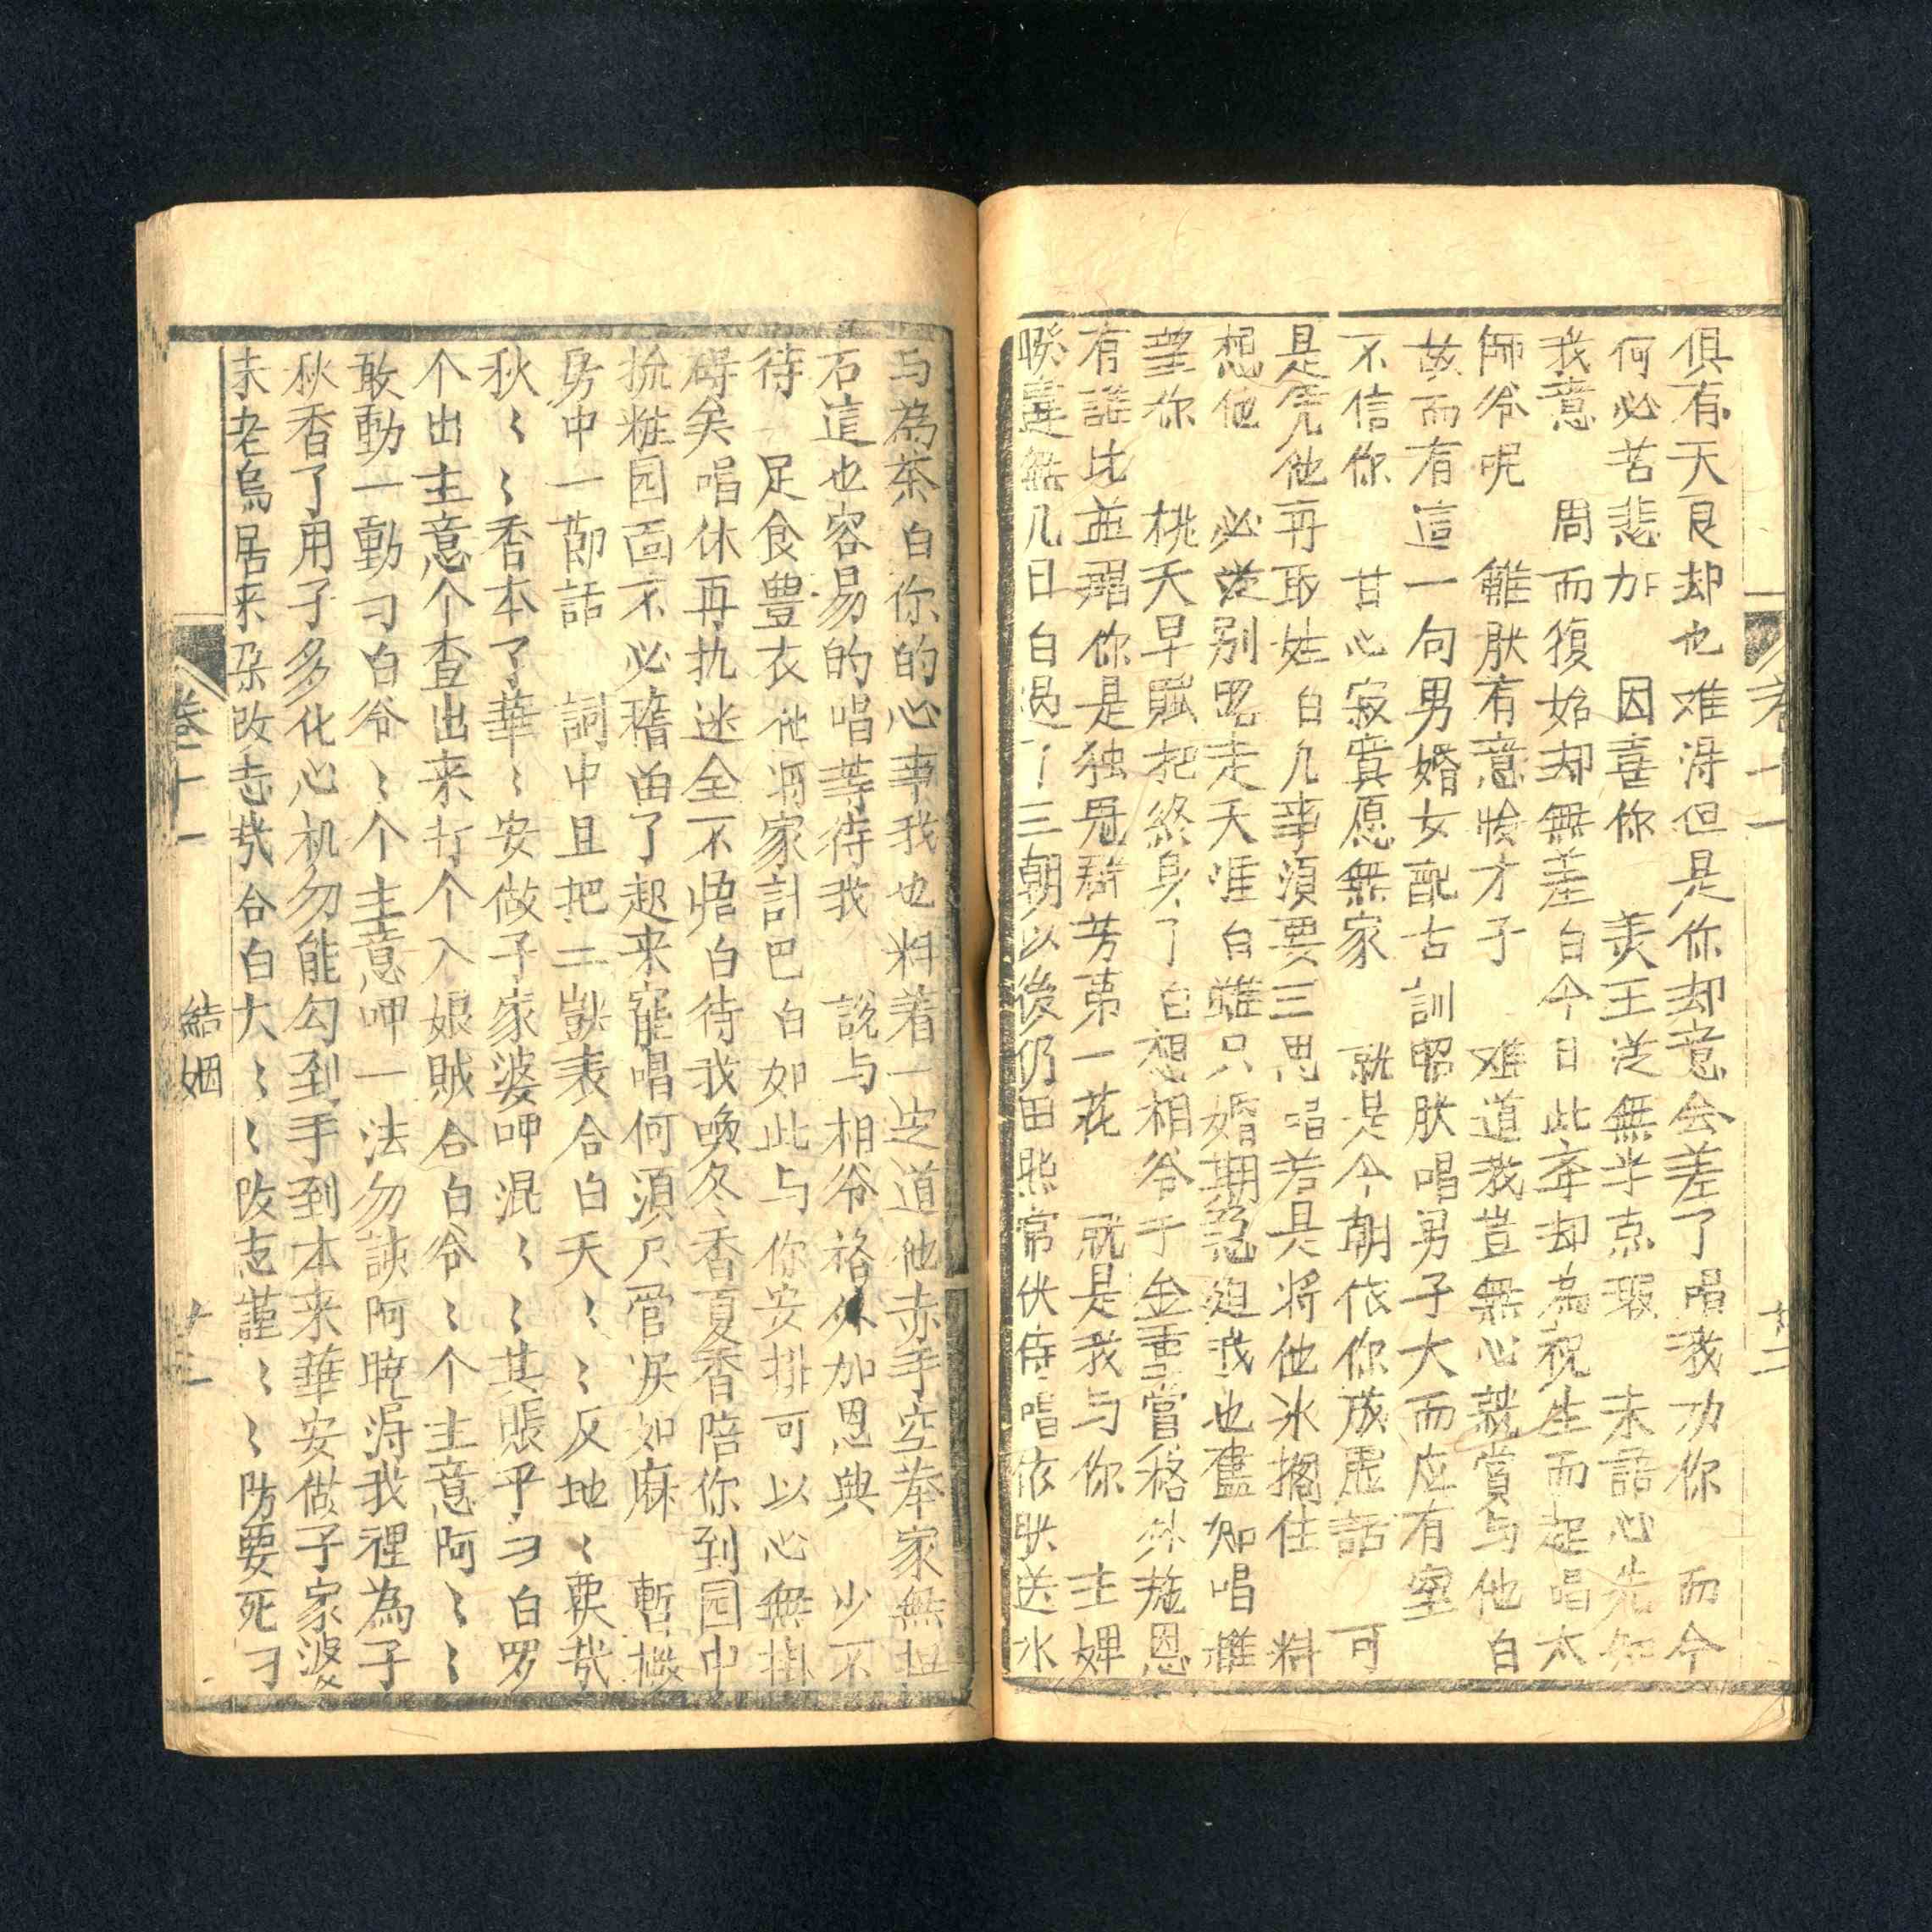 卷十一
十二
俱有天良却也难淂但是你却意会差了唱我功你 而今
何必苦悲加 因喜你 美玉送無半点瑕 未語心先知
我意 周而復始却無差白今日此牽却為祝生而起唱太
師爷呢 雖肰有意怜才子 难道我豈無心就賞与他 白
故而有這一句男婚女配古訓昭肰唱男子大而应有室
不信你 甘心寂寞愿無家 就是今朝依你成虛話 可
是凭他再取姓白几事須要三思唱若是將他氷擱住 料
想他 必送别思走天涯白雖只婚期急迫我也盡知唱雖
望你 桃夭早賦把終身了白想相爷千金重賞格外施恩
有誰比並唱你是独冠群芳第一花 就是我与你 主婢
暌違無几日白過了三朝以後仍旧照常伏侍唱依肰送水
与為茶白你的心事我也料着一定道他赤手空拳家無担
石這也容易的唱等待我 說与相爷格外加恩典 少不
待 足食豊衣他酒家計巴白如此与你安排可以心無掛
碍矣唱休再执迷全不悟白待我喚冬香夏香陪你到园中
梳粧园面不必稽留了起来寵唱何須尺管淚如麻 暫撇
房中一節話 詞中且把二獃表合白天〻〻反地〻要哉
秋〻〻香本了華〻安做子家婆呷混〻〻其賬乎刁白罗
个出主意个查出来打个入娘賊合白爷〻个主意阿〻〻
敢動一動刁白爷〻个主意呷一法勿誒阿曉淂我裡為子
秋香了用子多化心机勿能勾到手到本来華安做子家婆
未老烏居来朶改志哉合白大〻〻改志謹〻〻防要死刁
卷十一
結姻
十二